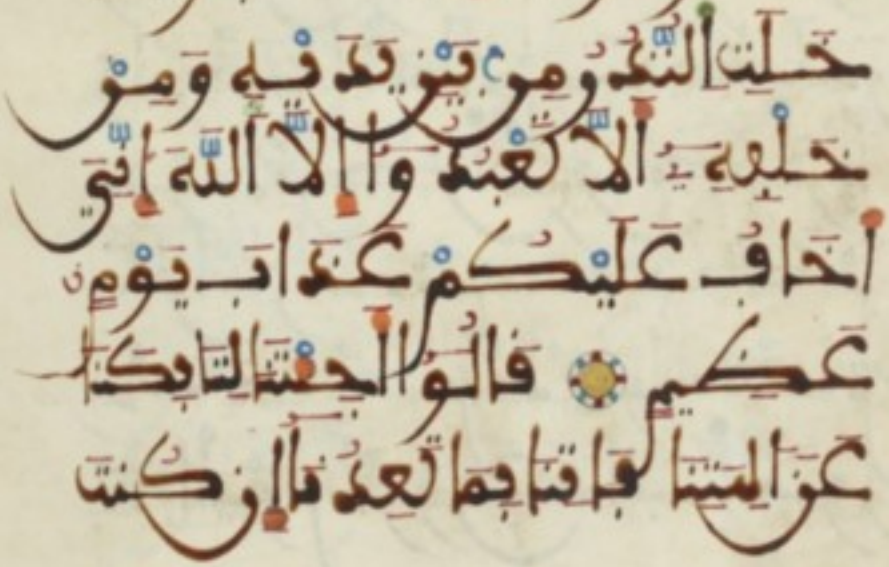 خَلَتِ النُّذُرُ مِنۢ بَيْنِ يَدَيْهِ وَمِنْ
خَلْفِهِۦ أَلَّا تَعْبُدُوا إِلَّا اللَّهَ إِنِّي
أَخَافُ عَلَيْكُمْ عَذَابَ يَوْمٍ
عَظِيمٍ قَالُوا أَجِئْتَنَا لِتَافِكَنَا
عَنْ الِهَتِنَا فَاتِنَا بِمَا تَعِدُنَا إِن كُنتَ